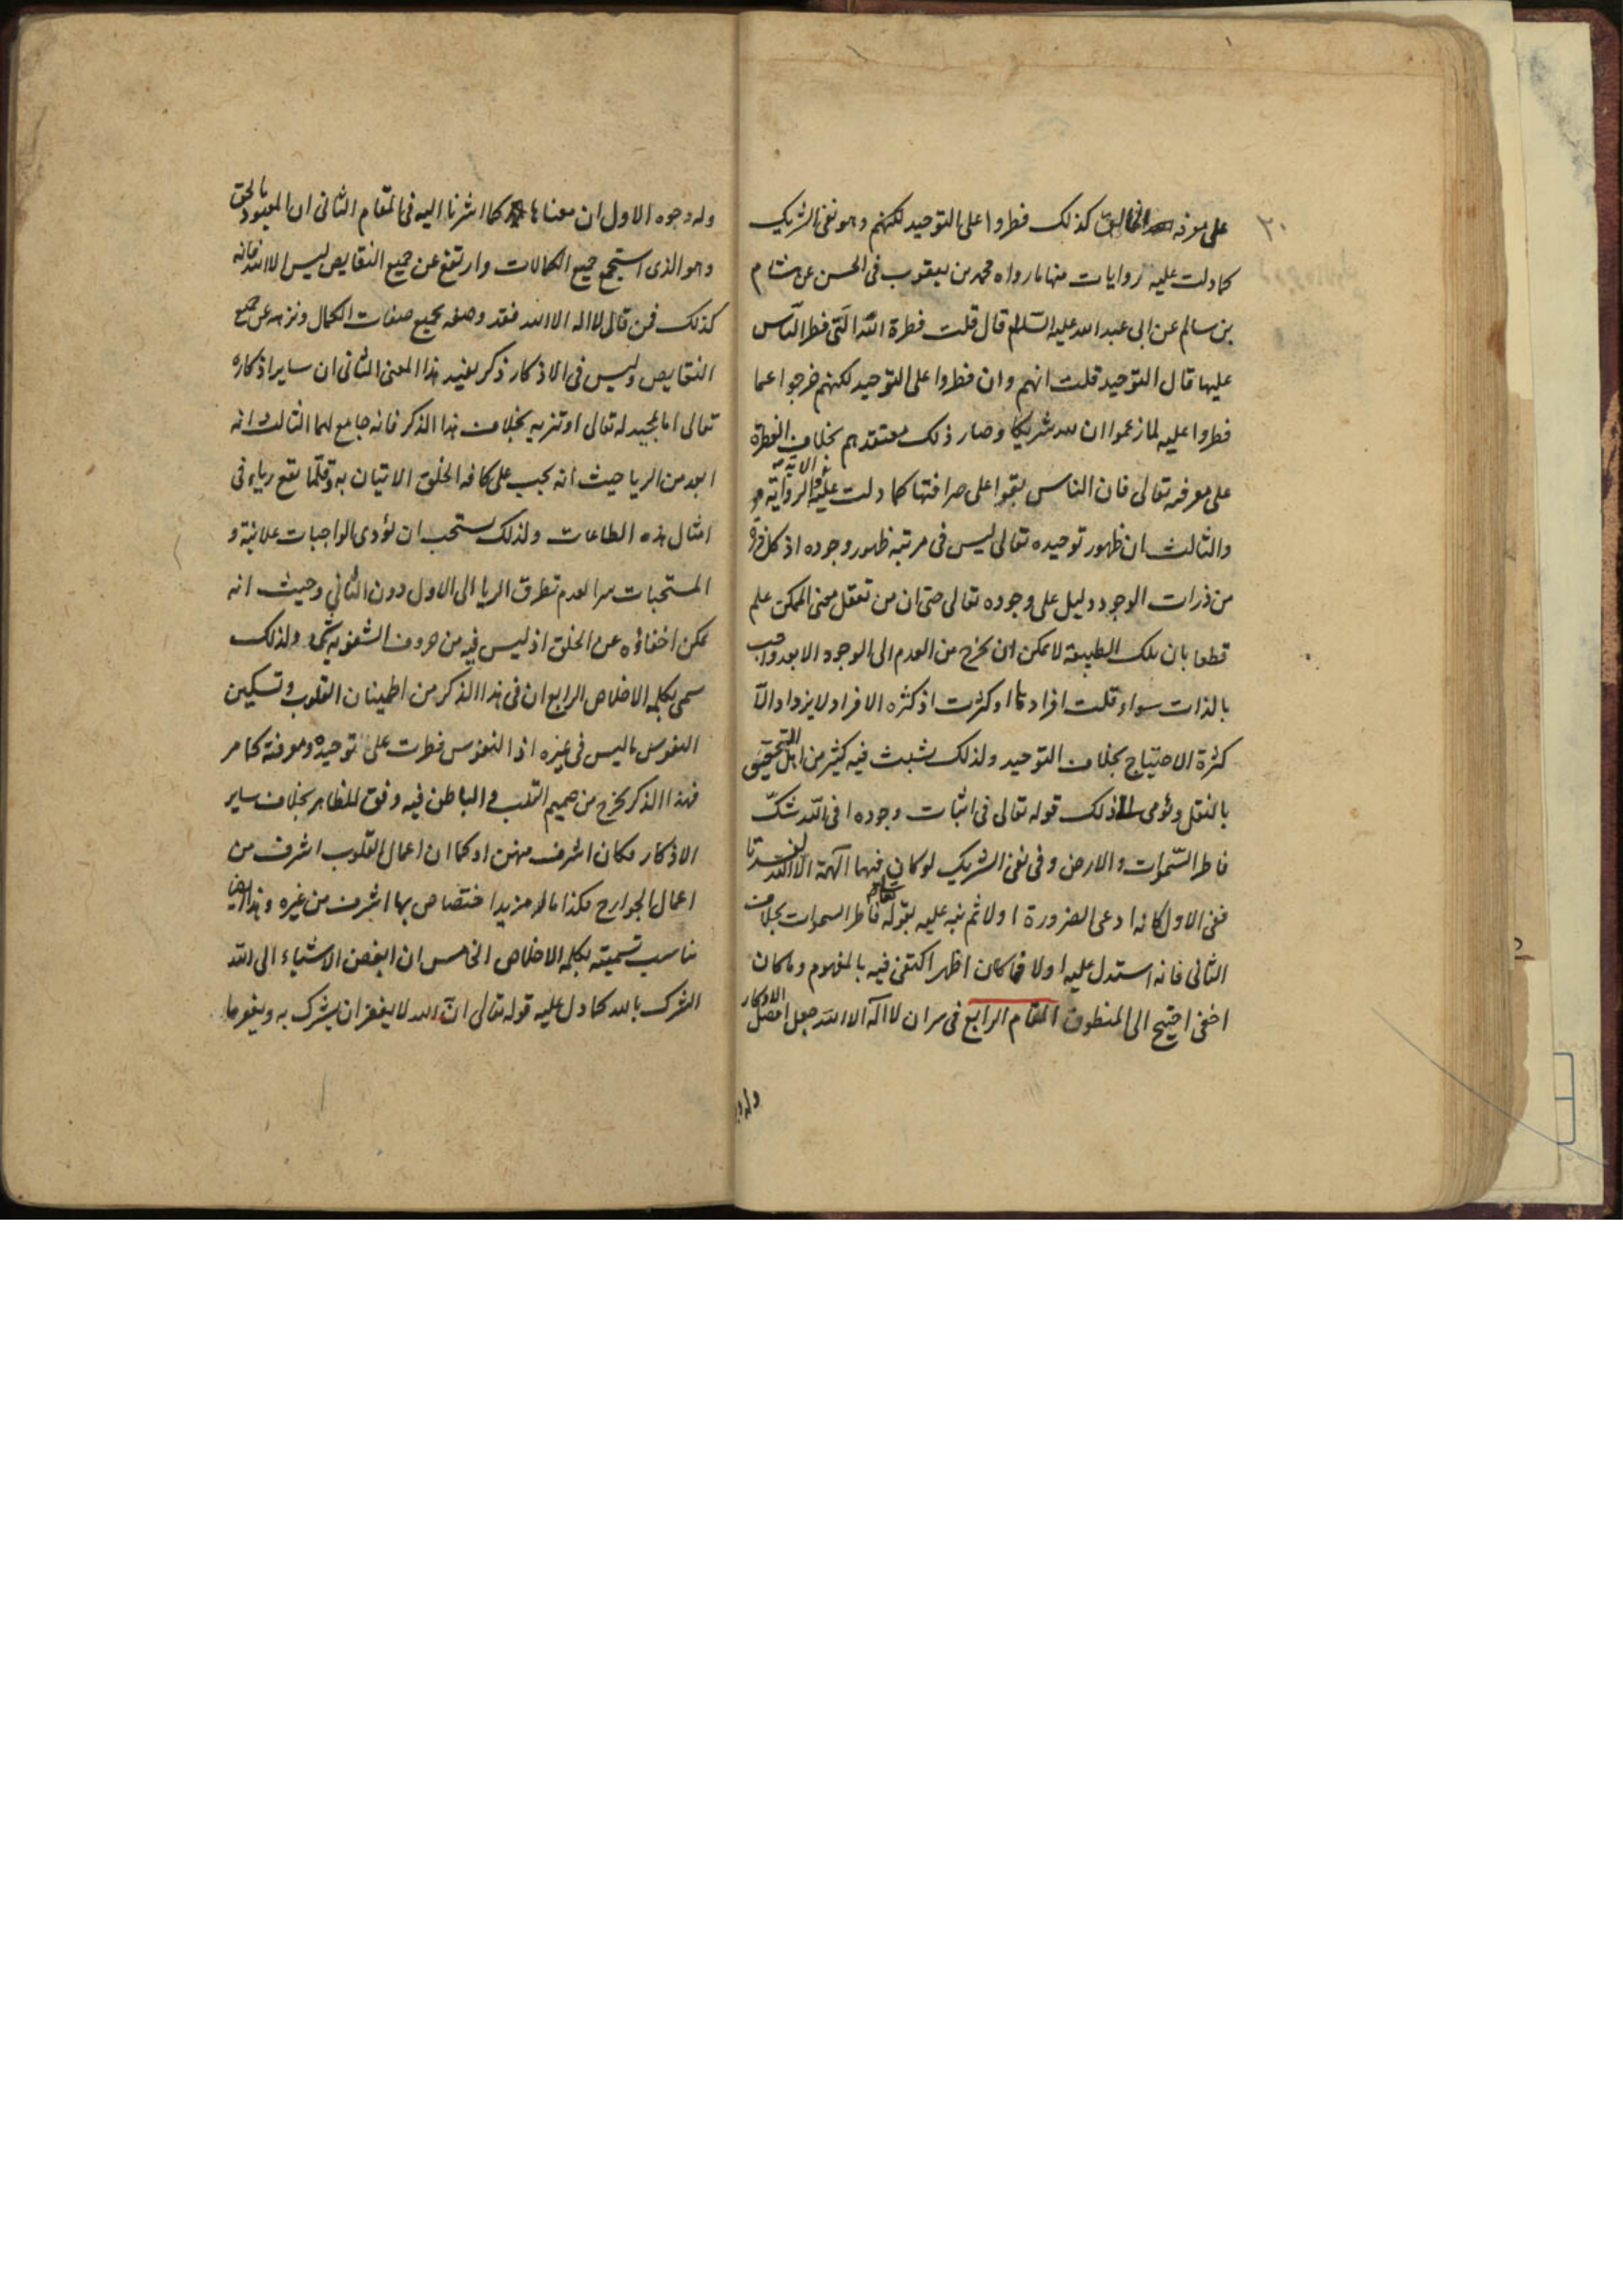 ٣٠
على معرفه الخالق كذلك فطروا على التوحيد لكنهم وهو نفى الشريك
كما دلت عليه روايات منها ما رواه محمد بن يعقوب فى الحسن عن هشام
بن سالم عن ابى عبد الله عليه السّلام قال قلت فطرة اللّه الّتى فطر النّاس
عليها قال التوحيد قلت انهم وان فطروا على التوحيد لكنهم خرجوا عما
فطروا عليه لما زعموا ان لله شريكا وصار ذلك معتقدهم بخلاف الفطرة
على معرفه تعالى فان الناس بقوا على صرافتها كما دلت عليه الآية والرواية
والثالث ان ظهور توحيده تعالى ليس فى مرتبة ظهور وجوده اذ كل ذرة
من ذرات الوجود دليل على وجوده تعالى حتى ان من تعقل معنى الممكن علم
قطعا بان تلك الطبيعة لا يمكن ان يخرج من العدم الى الوجود الا بعد واجب
بالذات سواء قلت افرادها او كثرت اذ كثره الافراد لا يزداد الّا
كثرة الاحتياج بخلاف التوحيد ولذلك يثبت فيه كثير من اهل التحقيق
بالنقل ويؤمى الى ذلك قوله تعالى فى اثبات وجوده افى اللّه شكّ
فاطر السّموات والارض وفى نفى الشريك لو كان فيهما آلهة الّا اللّه لفسدتا
ففى الاول كانه ادعى الضرورة اولا ثم نبه عليه بقوله تعالى فاطر السموات بخلاف
الثانى فانه استدل عليه اولا فما كان اظهر اكتفى فيه بالمفهوم وما كان
اخفى احتيج الى المنطوق المقام الرابع فى سر ان لا اله الا اللّه جعل افضل الاذكار
وله وجوه
وله وجوه الاول ان معناها كما اشرنا اليه فى المقام الثانى ان المعبود بالحق
وهو الذى استجمع جميع الكمالات وارتفع عن جميع النقايص ليس الا الله فانه
كذلك فمن قال لا اله الا الله فقد وصفه بجميع صفات الكمال ونزهه عن جميع
النقايص وليس فى الاذكار ذكر يفيد هذا المعنى الثانى ان ساير اذكاره
تعالى اما تمجيد له تعالى او تنزيه بخلاف هذا الذكر فانه جامع لهما الثالث انه
ابعد من الريا حيث انه يجب على كافه الخلق الاتيان به وقلّما يقع رياء فى
امثال هذه الطاعات ولذلك يستحب ان يؤدى الواجبات علانية و
المستحبات سرا لعدم تطرق الريا الى الاول دون الثانى وحيث انه
يمكن اخفاؤه عن الخلق اذ ليس فيه من حروف الشفويه شىء ولذلك
سمى بكلمه الاخلاص الرابع ان فى هذا الذكر من اطمينان القلوب وتسكين
النفوس ما ليس فى غيره اذ النفوس فطرت على توحيده ومعرفته كما مر
فهذا الذكر يخرج من صميم القلب والباطن فيه وفق للظاهر بخلاف ساير
الاذكار فكان اشرف منهن او كما ان اعمال القلوب اشرف من
اعمال الجوارح فكذا ماله مزيد اختصاص بها اشرف من غيره وهذا ايضا
يناسب تسميته بكلمه الاخلاص الخامس ان ابغض الاشياء الى اللّه
الشرك بالله كما دل عليه قوله تعالى انّ الله لا يغفر ان يشرك به ويغفر ما